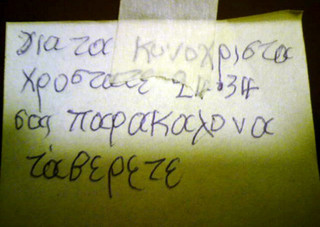 για τα κυνοχριστα
χροστατε
σας παρακαλο να
τα βερετε